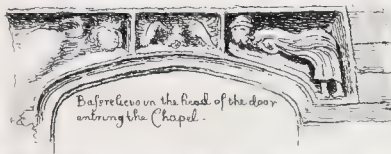 Basrelievo in the head of the door
entring the Chapel.